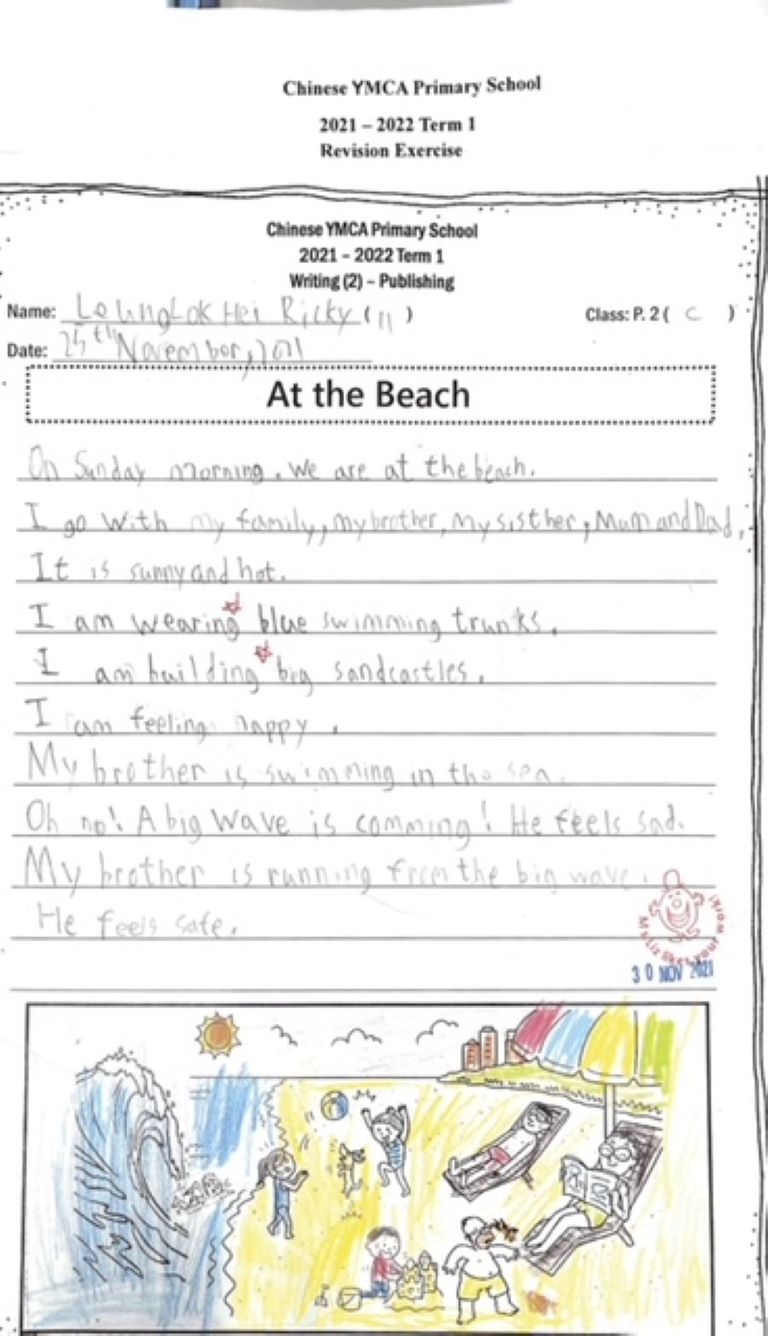 Chinese YMCA Primary School
2021 – 2022 Term 1
Revision Exercise
Chinese YMCA Primary School
2021 – 2022 Term 1
Writing (2) – Publishing
Name: Leung Lok Hei Ricky ( 11 ) Class: P. 2 ( C )
Date: 25th November, 2021
At the Beach
On Sunday morning, we are at the beach.
I go with my family, my brother, my sisther, Mum and Dad,
It is sunny and hot.
I am wearing blue swimming trunks.
I am building big sandcastles.
I am feeling happy.
My brother is swimming in the sea.
Oh no! A big wave is comming! He feels sad.
My brother is running from the big wave.
He feels safe.
Ms Liz likes your work!
30 NOV 2021